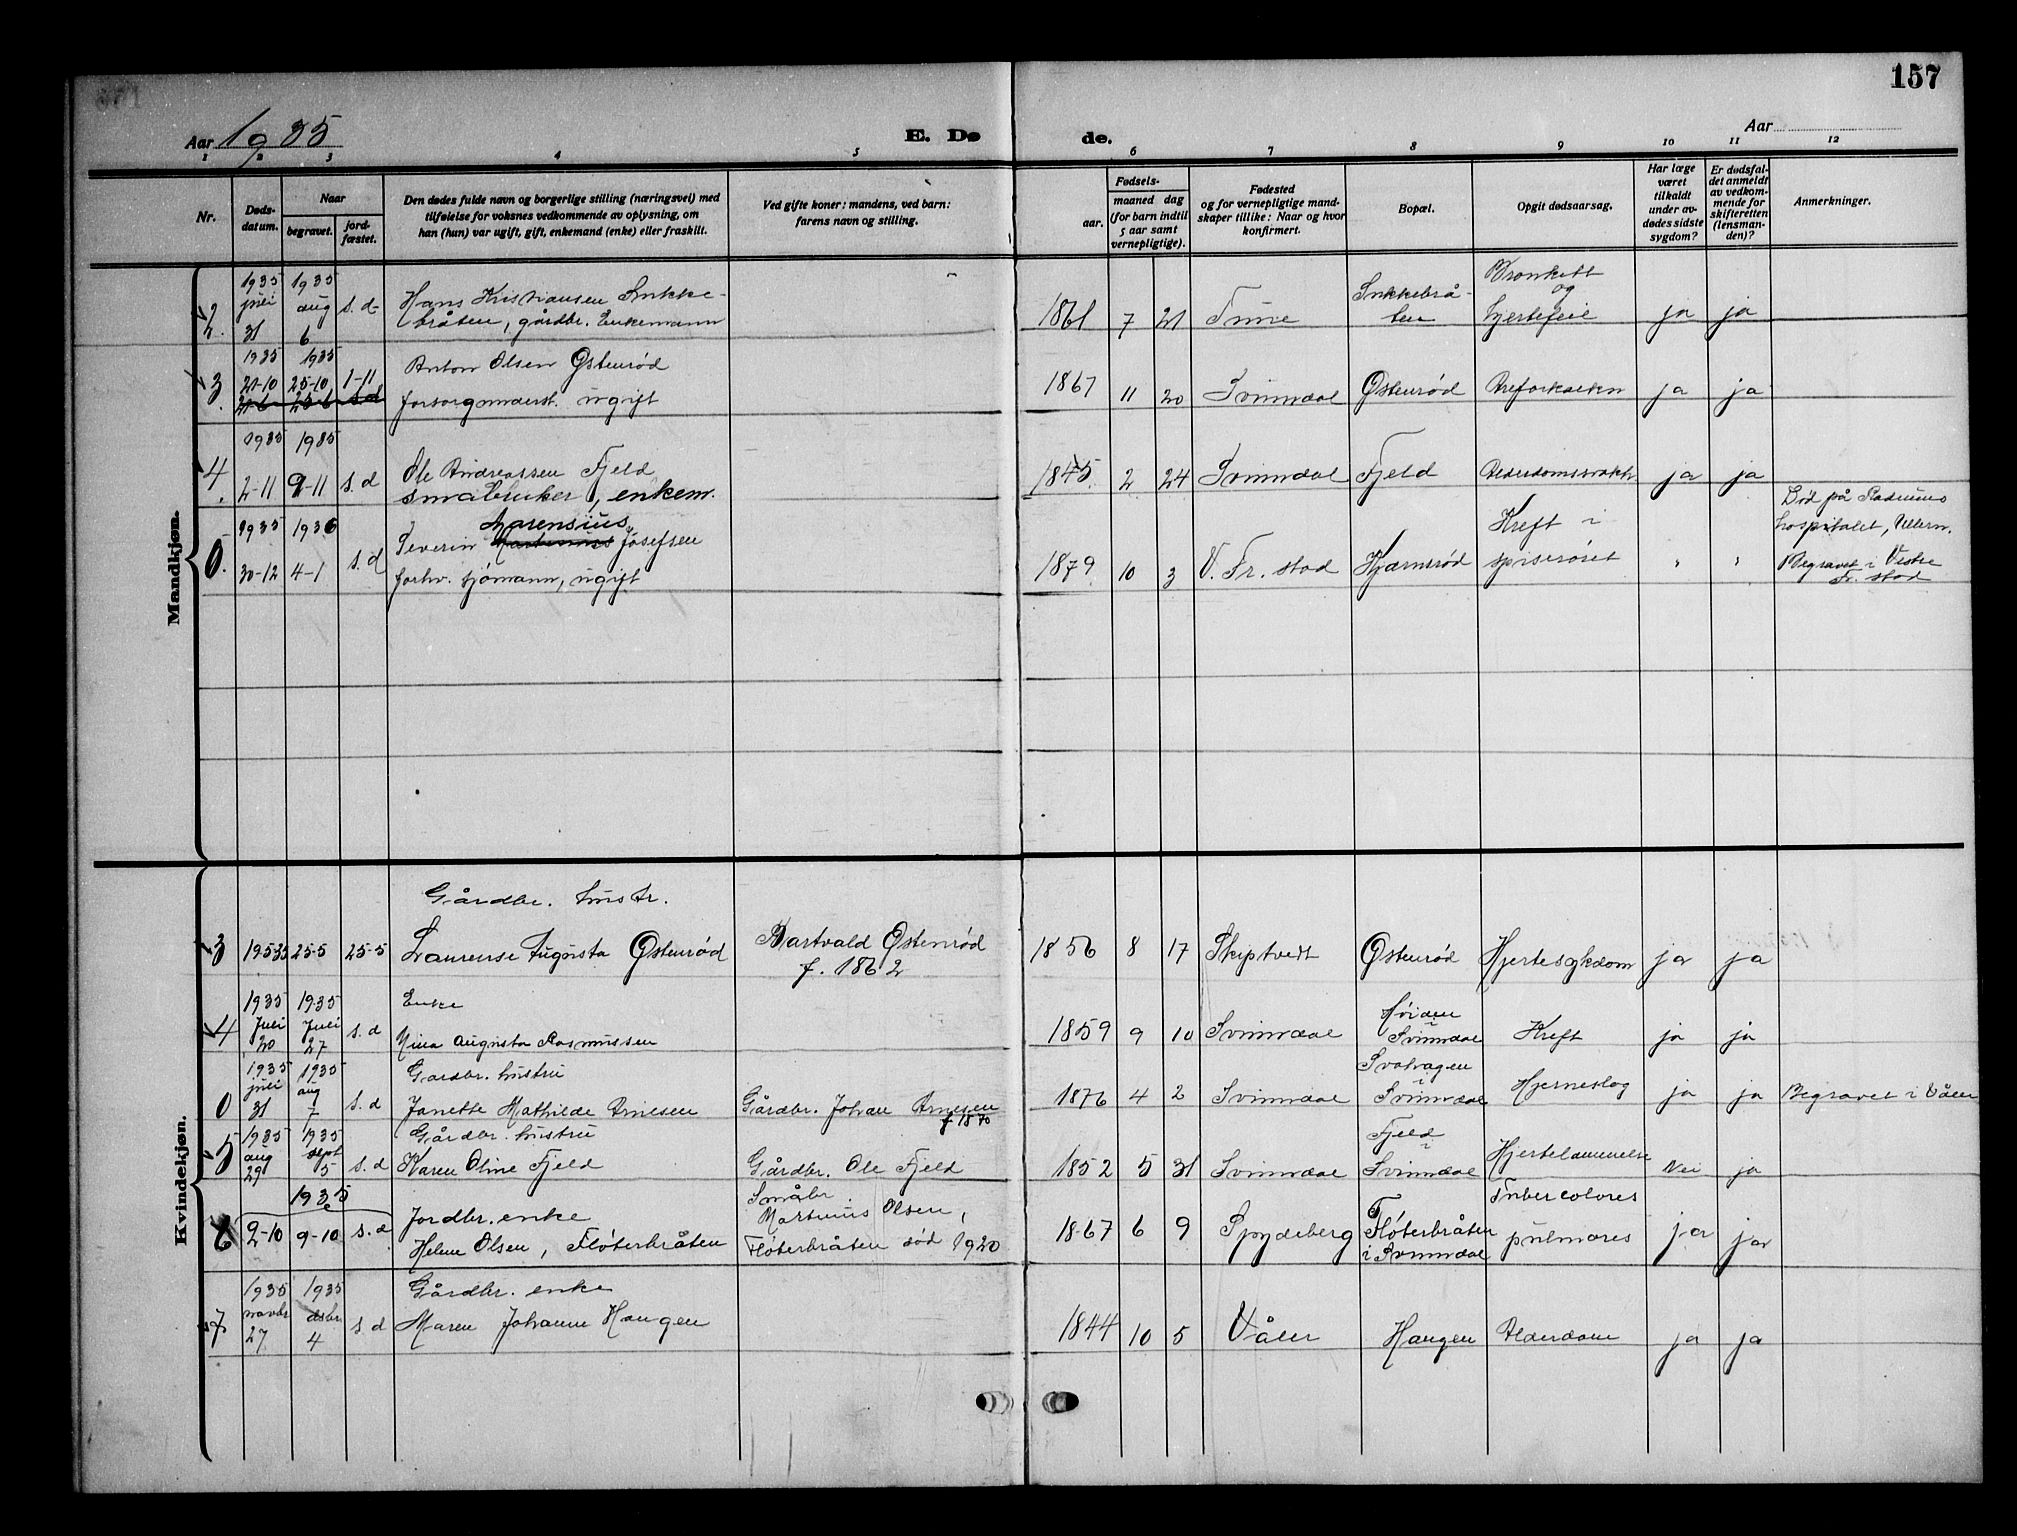 157
Aar 1935
E. Dø de.
Aar
1 2 3 4 5 6 7 8 9 10 11 12
Nr.
Døds-
datum.
Naar
begravet.
jord-
fæstet.
Den dødes fulde navn og borgerlige stilling (næringsvei) med
tilføielse for voksnes vedkommende av oplysning, om
han (hun) var ugift, gift, enkemand (enke) eller fraskilt.
Ved gifte koner: mandens, ved barn:
farens navn og stilling.
Fødsels-
aar.
maaned dag
(for barn indtil
5 aar samt
vernepligtige).
Fødested
og for vernepligtige mand-
skaper tillike: Naar og hvor
konfirmert.
Bopæl.
Opgit dødsaarsag.
Har læge
været
tilkaldt
under av-
dødes sidste
sygdom?
Er dødsfal-
det anmeldt
av vedkom-
mende for
skifteretten
(lensman-
den)?
Anmerkninger.
Mandkjøn.
2. 1935 juli 31 1935 aug 6 s. d. Hans Kristiansen
bråten, gårdbr. Enkemann
1861 7 21 Tune
Bronkitt
og
hjertefeil
ja ja
3. 1935 21-10 1935 25-10 1-11 Anton Olsen Østenrød
21-6 25-6 s.d
forsorgunderst. ugift
1867 11 20 Svinndal Østenrød Areforkalkn ja ja
4. 1935 2-11 1935 9-11 s. d Ole Andreassen Fjeld
småbruker, enkem.
1845 2 24 Svinndal Fjeld ja ja
0. 1935 30-12 1936 4-1 s. d Severin Josefsen
forhv. sjømann, ugift
1879 10 3 V. Fr. stad Kjærnsrød
Kreft i
spiserøret
" "
Død på Radiums
hospitalet, Ullern.
Begravet i Vestre
Fr. stad
Kvindekjøn.
Gårdbr. hustr.
3 25-5 25-5 Laurense Augusta Østenrød
Martvald Østenrød
f. 1862
1856 8 17 Skiptvedt Østenrød Hjertesykdom ja ja
4 1935 Juli 20 1935 Juli 27 s. d
Enke
Nina Augusta Rasmussen
1859 9 10 Svinndal
Høiden
i
Svinndal
Kreft ja ja
0 1935 juli 31 1935 aug 7 s. d
Gardbr. hustru
Janette Mathilde Arnesen
Gårdbr. Johan Arnesen
f 1870
1876 4 2 Svinndal
i
Svinndal
Hjerneslag ja ja Begravet i Våler
5 1935 aug 29 1935 sept 5 s. d
Gårdbr. hustru
Karen Oline Fjeld
Gårdbr. Ole Fjeld
1852 5 31 Svinndal
Fjeld
i
Svinndal
Hjertelammelse Nei ja
6 1935 2-10 9-10 s. d
Jordbr. enke
Helene Olsen, Fløterbråten
Småbr
Martinius Olsen,
Fløterbråten død 1920
1867 6 9 Spydeberg
Fløterbråten
i Svinndal
Tubercolores
pulmores
ja ja
7 1935 novbr 27 1935 desbr 4 s d
Gårdbr. enke
Maren Johanne Haugen
1844 10 5 Våler Haugen Alderdom ja ja